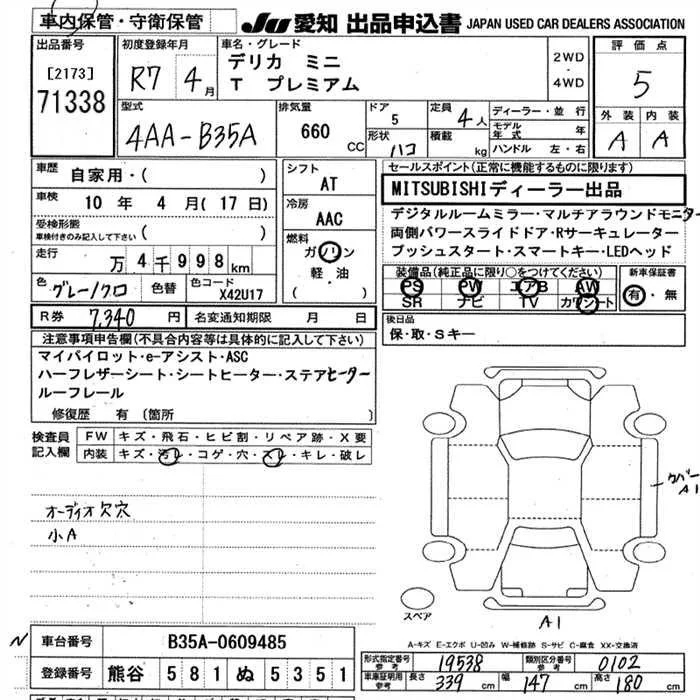 車内保管・守衛保管
JU 愛知 出品申込書 JAPAN USED CAR DEALERS ASSOCIATION
出品番号
[2173]
71338
初度登録年月
R7 4月
車名・グレード
デリカ ミニ
T プレミアム
2WD
・
4WD
評価点
5
外装 内装
A A
型式
4AA-B35A
排気量
660 CC
ドア
5
形状
ハコ
定員 4人
積載 kg
ディーラー・並行
モデル年式 年
ハンドル 左・右
車歴 自家用・( )
車検 10年 4月(17日)
受検形態
車検付きのみ記入して下さい ( )
走行 万4千998km
色 グレー/クロ 色替 色コード X42U17
シフト
AT
冷房
AAC
燃料
ガソリン
軽・油
( )
R券 7,340円 名変通知期限 月 日
セールスポイント(正常に機能するものに限ります)
MITSUBISHIディーラー出品
デジタルルームミラー・マルチアラウンドモニター
両側パワースライドドア・Rサーキュレーター
プッシュスタート・スマートキー・LEDヘッド
装備品(純正品に限り○をつけてください)
PS PW エアB AW
SR ナビ TV カワシート
新車保証書
有・無
後日品
保・取・Sキー
注意事項申告欄(不具合内容等は具体的に記入して下さい)
マイパイロット・e-アシスト・ASC
ハーフレザーシート・シートヒーター・ステアヒーター
ルーフレール
修復歴 有 〔箇所 〕
検査員記入欄
FW キズ・飛石・ヒビ割・リペア跡・X要
内装 キズ・汚レ・コゲ・穴・スレ・キレ・破レ
オーディオ欠穴
小A
カバーA1
スペア
A1
A-キズ E-エクボ U-凹み W-補修跡 S-サビ C-腐食 XX-交換済
N
車台番号 B35A-0609485
登録番号 熊谷 581 ぬ 5351
形式指定番号参考 19538 類別区分番号参考 0102
車庫証明用参考 長さ 339cm 幅 147cm 高さ 180cm